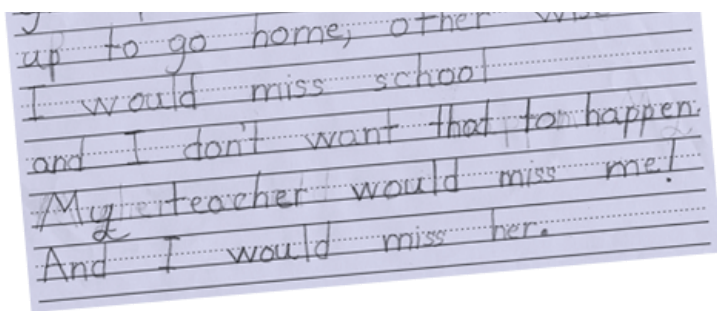 up to go home, other wise
I would miss school
and I don't want that to happen.
My teacher would miss me!
And I would miss her.